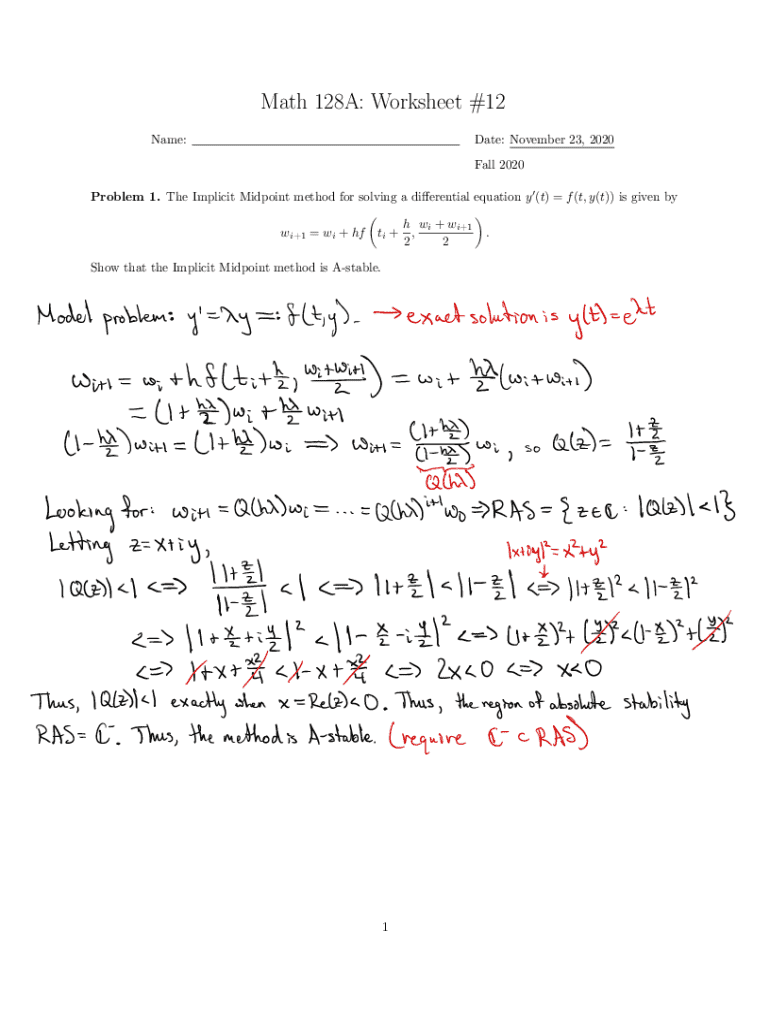 Math 128A: Worksheet #12
Name: Date: November 23, 2020
Fall 2020
Problem 1. The Implicit Midpoint method for solving a differential equation y′(t) = f(t, y(t)) is given by
w_{i+1} = w_i + hf(t_i + h/2, (w_i + w_{i+1})/2).
Show that the Implicit Midpoint method is A-stable.
Model problem: y' = λy =: f(t,y). → exact solution is y(t) = e^{λt}
w_{i+1} = w_i + h f(t_i + h/2, (w_i + w_{i+1})/2) = w_i + hλ/2 (w_i + w_{i+1})
= (1 + hλ/2) w_i + hλ/2 w_{i+1}
(1 - hλ/2) w_{i+1} = (1 + hλ/2) w_i ⟹ w_{i+1} = (1 + hλ/2)/(1 - hλ/2) w_i, so Q(z) = (1 + z/2)/(1 - z/2)
Q(hλ)
Looking for: w_{i+1} = Q(hλ) w_i = ... = Q(hλ)^{i+1} w_0 ⇒ RAS = {z ∈ ℂ : |Q(z)| < 1}
Letting z = x + iy, |x+iy|² = x² + y²
|Q(z)| < 1 <=> |1 + z/2|/|1 - z/2| < 1 <=> |1 + z/2| < |1 - z/2| <=> |1 + z/2|² < |1 - z/2|²
<=> |1 + x/2 + i y/2|² < |1 - x/2 - i y/2|² <=> (1 + x/2)² + (y/2)² < (1 - x/2)² + (y/2)²
<=> 1 + x + x²/4 < 1 - x + x²/4 <=> 2x < 0 <=> x < 0
Thus, |Q(z)| < 1 exactly when x = Re(z) < 0. Thus, the region of absolute stability
RAS = ℂ⁻. Thus, the method is A-stable. (require ℂ⁻ ⊂ RAS)
1